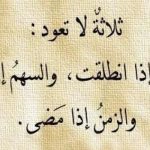 ثلاثةٌ لا تعود :
إذا انطلقت، والسهمُ إ
والزمنُ إذا مَضى.